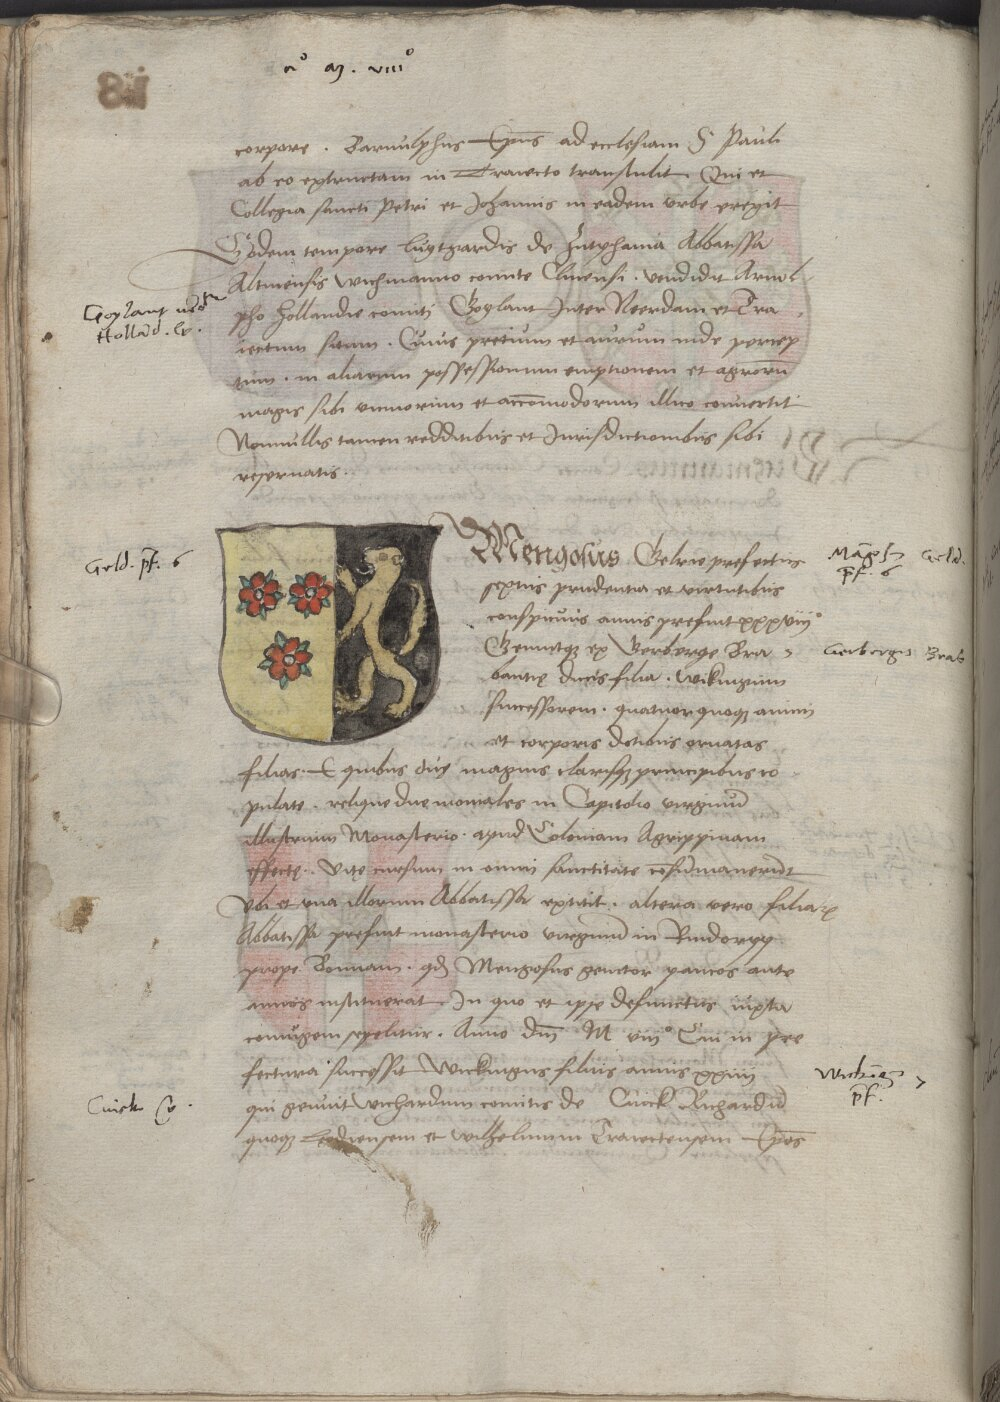 aº m. viiiº
corpore . Barnulphus Ep̄us ad ecclesiam S. Pauli
ab eo extructam in Traiecto transtulit Qui et
Collegia sancti Petri et Johannis in eadem urbe erexit
Eodem tempore Luytgardis de Zutphania Abbatissa
Altinensis Wichmanno comite Clivensi . vendidit Arnol
pho Hollandie comiti Goylant Inter Neerdam et Tra
iectum situm . Cuius pretium et aurum inde percep
tum . in aliarum possessionum emptionem et agrorū
magis sibi vicinorum et accōmodorum illico convertit
Nonnullis tamen redditibus et Jurisdictionibus sibi
reservatis .
Goylant
Holland.
Geld. pf. 6
Mengosus Gelrie prefectus
septus prudentia et virtutibus
conspicuus annis prefuit xxxviijº
Genuitqz ex Gerberge Bra
bantię ducis filia . Wikingum
successorem . quatuor quoqz animi
et corporis dotibus ornatas
filias . E quibus duę magnis clarisqz principibus co
pulate . relique due moniales in Capitolio virginū
illustrium Monasterio . apud Coloniam Agrippinam
effectę . Vitę cursum in omni sanctitate
Ubi et una illarum Abbatissa extitit . altera vero filia
Abbatissa prefuit monasterio virginū in Rindorpp
prope Bonnam . qd Mengosus genitor paucos ante
annos instituerat In quo et ipse defunctus iuxta
coniugem sepelitur . Anno dm̄ M viijº Cui in pre
fectura successit Wickingus filius annis xxiiij
qui genuit Wichardum comitis de Cuick Richardū
quoqz Leodiensem et Wilhelmum Traiectensem Ep̄os
Geld.
pf. 6
Gerbergis Brab
pf.
Cuick